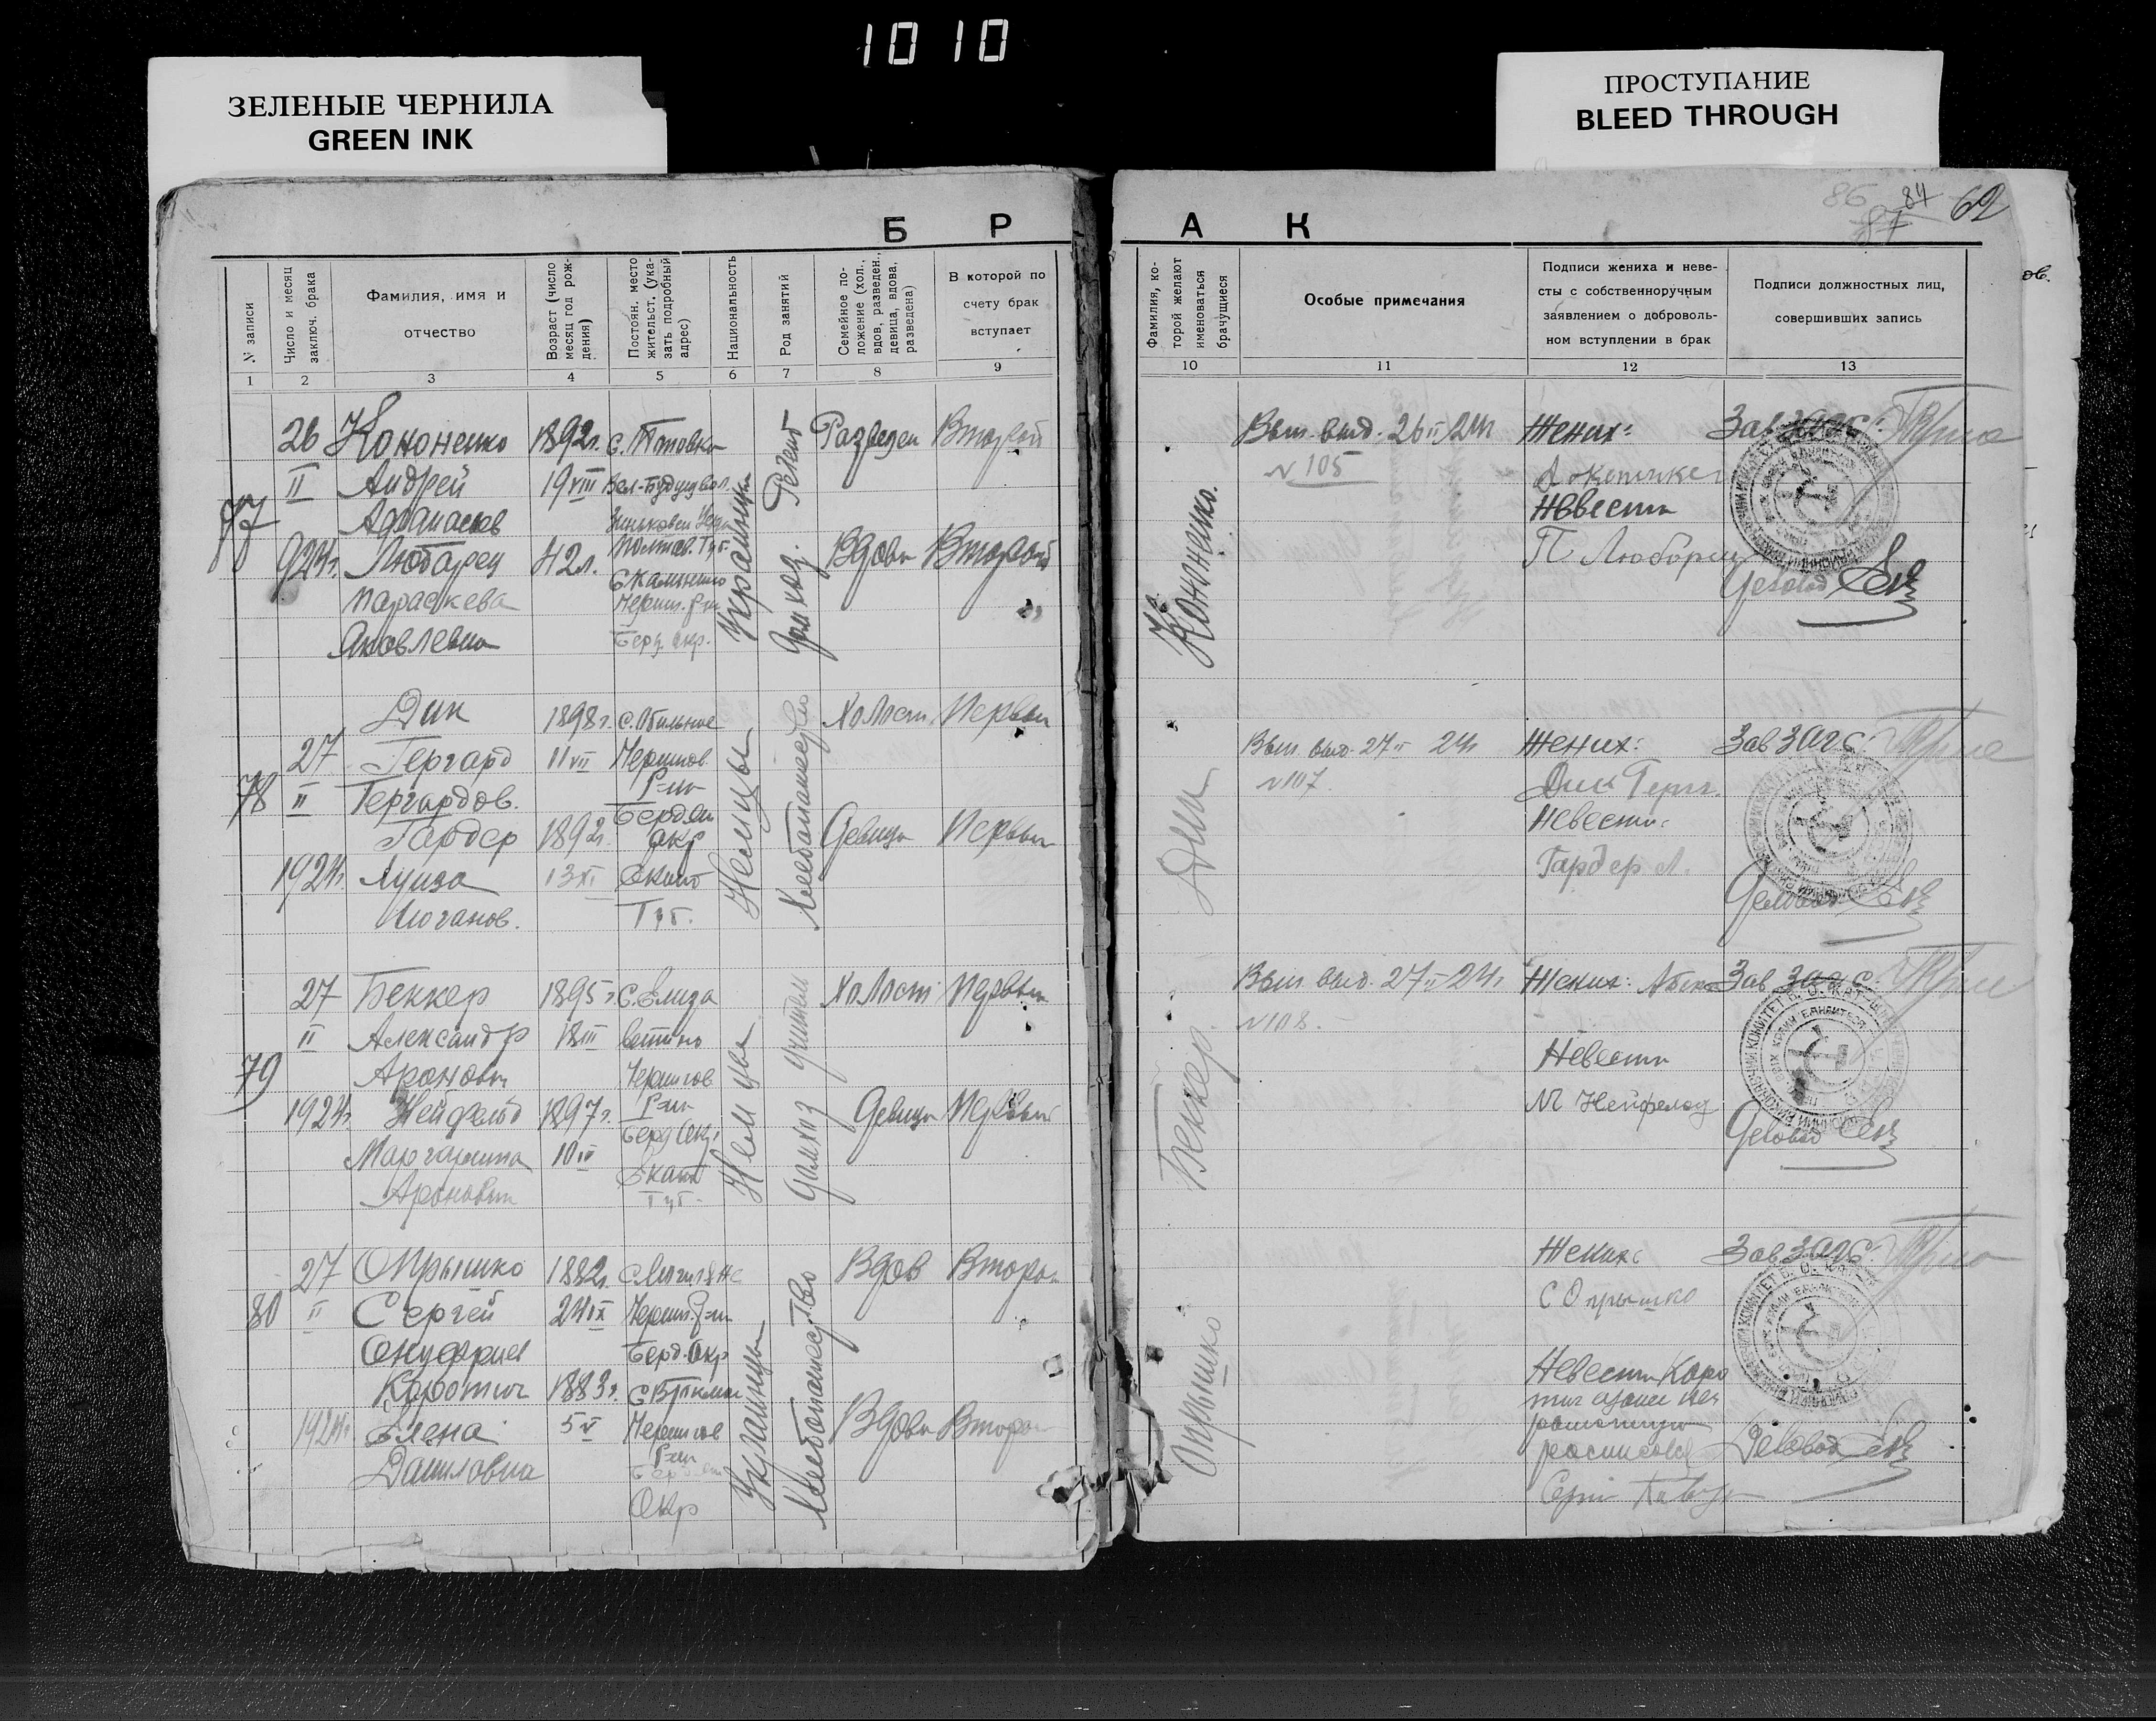 1010
ЗЕЛЕНЫЕ ЧЕРНИЛА
GREEN INK
ПРОСТУПАНИЕ
BLEED THROUGH
86 84 62
87
Б Р А К
№ записи
Число и месяц заключ. брака
Фамилия, имя и отчество
Возраст (число месяц год рождения)
Постоян. место жительст. (указать подробный адрес)
Национальность
Род занятий
Семейное положение (хол., вдов, разведен., девица, вдова, разведена)
В которой по счету брак вступает
Фамилия, которой желают именоваться брачущиеся
Особые примечания
Подписи жениха и невесты с собственноручным заявлением о добровольном вступлении в брак
Подписи должностных лиц, совершивших запись
1 2 3 4 5 6 7 8 9 10 11 12 13
77
26
II
924г.
Кононенко
Андрей
Афанасьев
Любарец
Параскева
Яковлевна
1892г.
19 VIII
42 л.
с. Поповка
Полтав. Губ.
Берд. окр.
Украинцы
Домхоз.
Разведен Второй
Вдова Второй
Кононенко.
Вып. выд. 26 II 24г
№ 105
Жених:
Невеста
П Любарец
Зав ЗАГС:
Деловод
78
27
II
1924г.
Дик
Гергард
Гергардов.
Гардер
Луиза
Иоганов.
1898г.
11 VII
1892г.
13 XI
с. Обильное
Чернигов.
Р-на
Бердян
окр
Екат
Губ.
Немцы
Хлебопашество
Холост Первый
Девица Первый
Дик
Вып. выд. 27 II 24г
№ 107
Жених:
Дик Герг.
Невеста:
Гардер Л.
Зав ЗАГС:
Деловод
79
27
II
1924г.
Беккер
Александр
Аронович
Нейфельд
Маргарита
Ароновна
1895г.
18 III
1897г.
10 IV
с. Елиза
ветово
Чернигов
Р-на
Берд Окр
Екат
Губ.
Немцы
учитель
Домхоз
Холост Первый
Девица Первый
Беккер.
Вып. выд. 27 II 24г.
№ 108.
Жених:
Невеста
М Нейфельд
Зав ЗАГС:
Деловод
80
27
II
1924г.
Опрышко
Сергей
Онуфриев
Коротич
Елена
Даниловна
1882г.
24 IX
1883г.
5 V
Черниг. р-на
Берд. Окр
Чернигов
Р-на
Окр
Украинцы
Хлебопашество
Вдов Второй
Вдова Второй
Опрышко
Жених
С Опрышко
Невеста Коро
тич
Зав ЗАГС:
Деловод